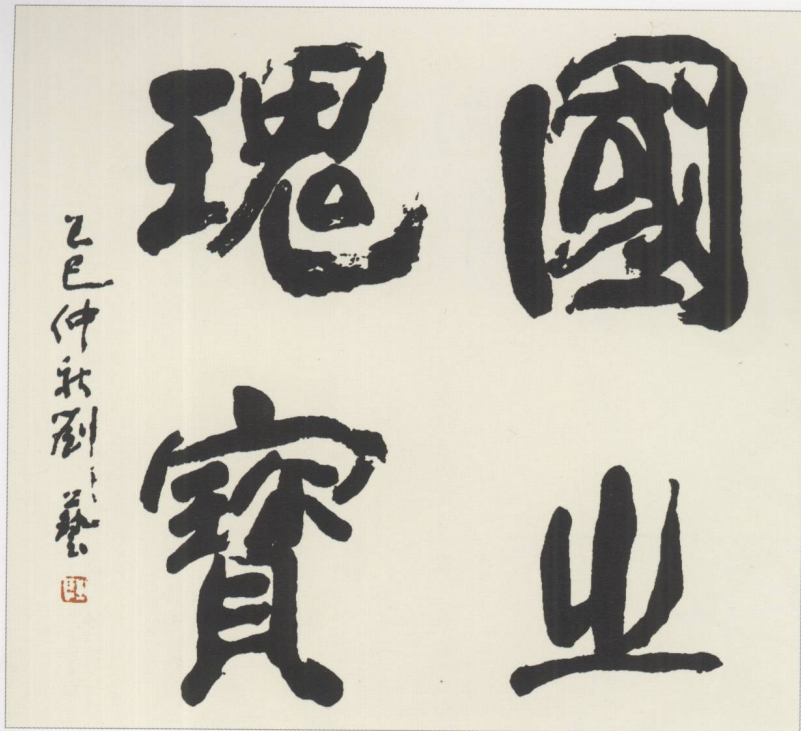 國之
瑰寶
乙巳仲秋劉藝